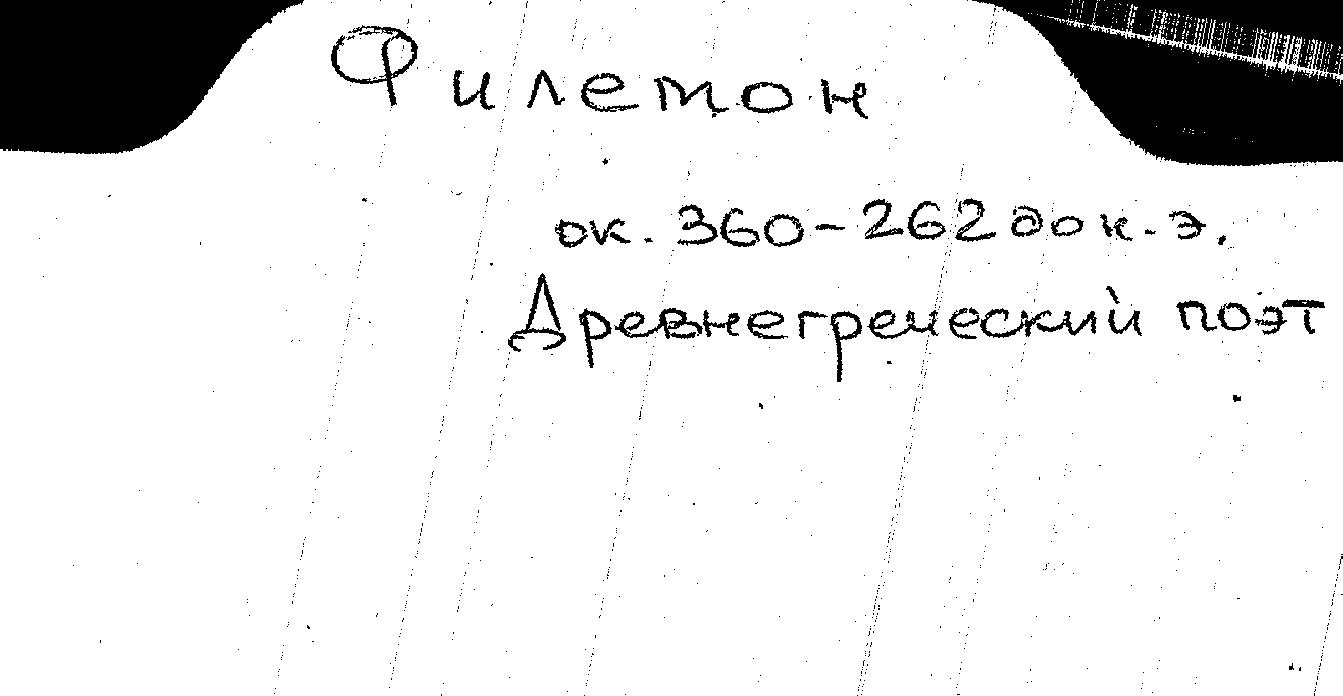 Филемон
ок. 360-262 до н.э.
Древнегреческий поэт